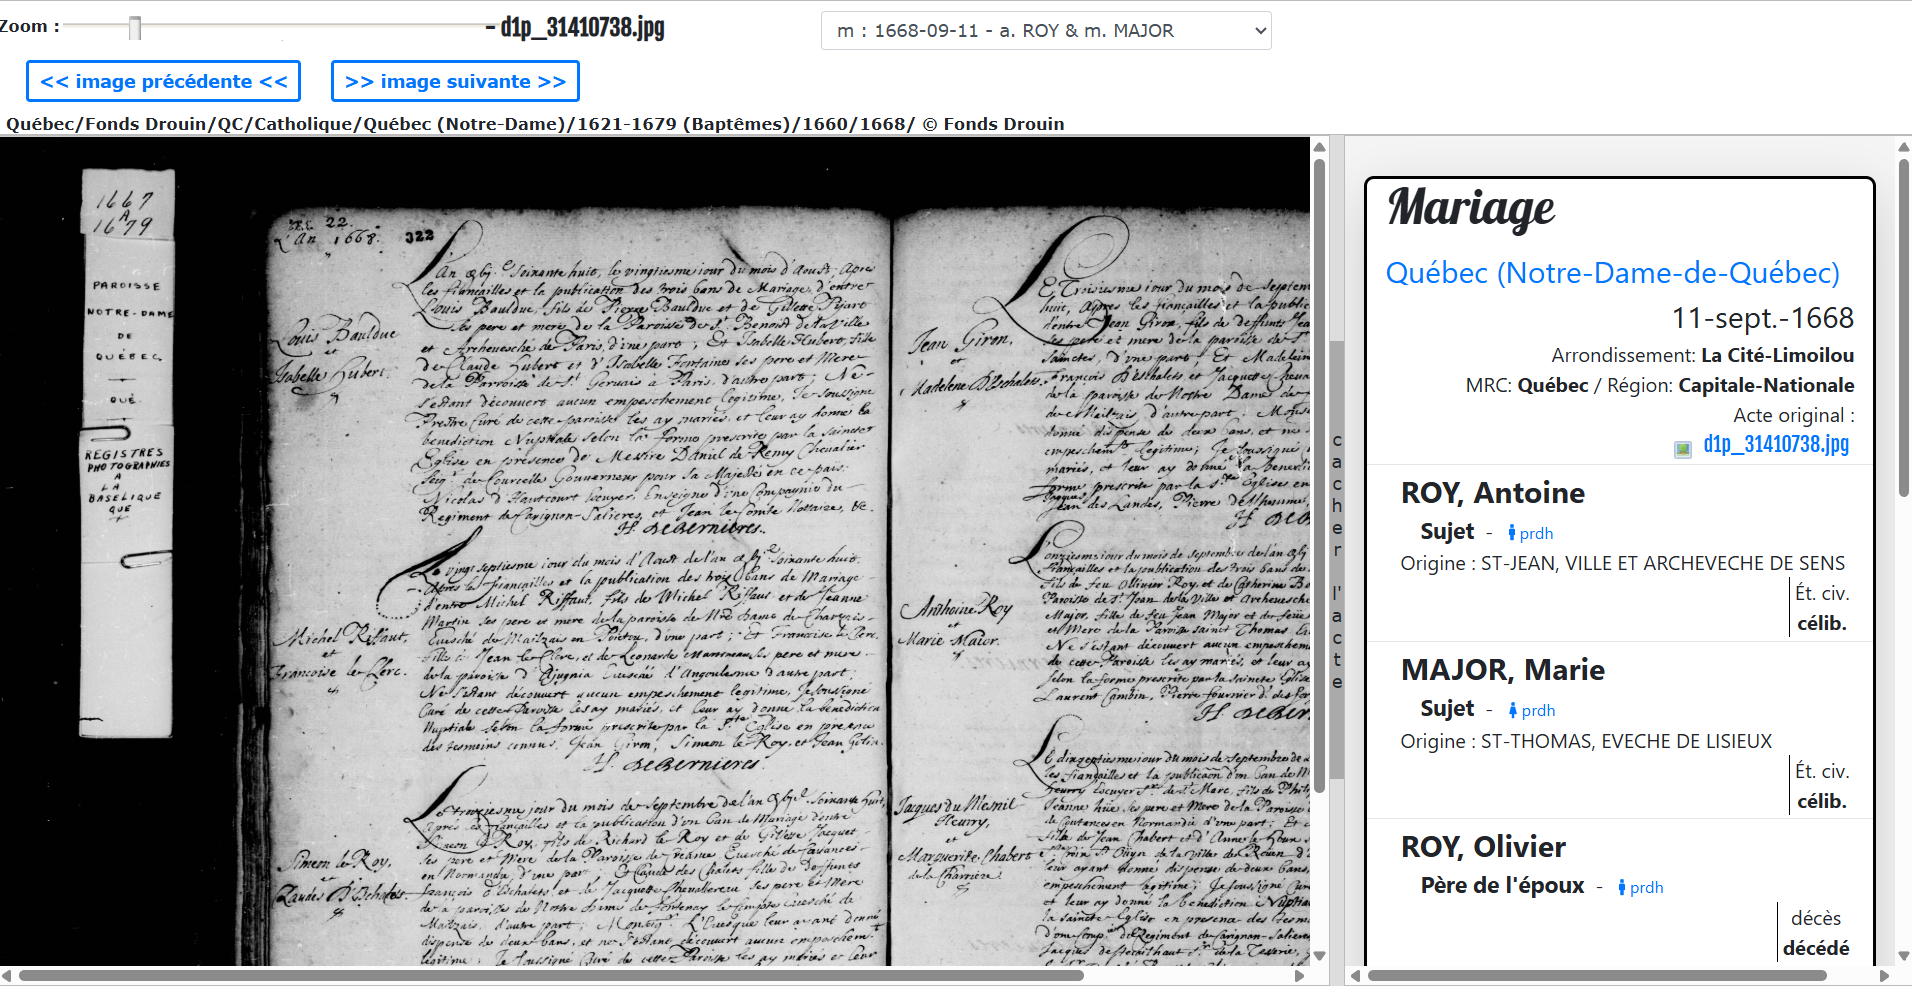 Zoom :
– d1p_31410738.jpg
m : 1668-09-11 - a. ROY & m. MAJOR
<< image précédente <<
>> image suivante >>
Québec/Fonds Drouin/QC/Catholique/Québec (Notre-Dame)/1621-1679 (Baptêmes)/1660/1668/ © Fonds Drouin
1667
A
1679
PAROISSE
NOTRE-DAME
DE
QUÉBEC
QUÉ.
REGISTRES
PHOTOGRAPHIES
A
LA
BASELIQUE
QUE
22.
L'An 1668.
322
L'An Soixante huit, le vingtiesme jour du mois d'Aoust; Apres
les fiançailles et la publication des trois bans de Mariage d'entre
Louis Bauldue, fils de Pierre Bauldue et de Gillette Pijart
Ses pere et mere de la Paroisse de St. Benoist de la Ville
et Archevesché de Paris d'une part; Et Isabelle Hubert, fille
de Claude Hubert et d'Isabelle Fontaine ses pere et Mere
de la Parroisse de St. Gervais à Paris d'autre part; Ne
s'estant découvert aucun empeschement legitime, Je soussigné
Prestre Curé de cette paroisse les ay mariés et leur ay donné la
benediction Nuptiale selon la forme prescrite par la saincte
Eglise en présence de Messire Daniel de Remy Chevalier
Seigr. de Courcelle Gouverneur pour sa Majesté en ce pais;
Nicolas d'Hautcourt Escuyer, Enseigne d'une Compagnie du
Regiment de Carignan-Salieres, et Jean le Comte Nottaire, &c.
H. DE BERNIERES.
Louis Bauldue
et
Isabelle Hubert.
Le vingt septiesme jour du mois d'Aoust de l'an Soixante huit.
Apres les fiançailles et la publication des trois bans de Mariage
d'entre Michel Riffaut, fils de Michel Riffaut et de Jeanne
Martin ses pere et mere de la paroisse de
Evesché de Maillezais en Poictou, d'une part; Et Francoise le Clerc,
fille de Jean le Clerc, et de Leonarde ses pere et mere
de la paroisse d' Evesché d'Angoulesme d'autre part;
Ne s'estant découvert aucun empeschement legitime, Je soussigné
Curé de cette Paroisse les ay mariés, et leur ay donné la benediction
Nuptiale selon la forme prescrite par la Ste Eglise en presence
des tesmoins connus, Jean Giron, Simeon le Roy, et Jean Gelin.
H. DE BERNIERES.
Michel Riffaut,
et
Francoise le Clerc.
Le troiziesme jour du mois de Septembre de l'an Soixante huit,
apres les fiançailles et la publication d'un ban de Mariage d'entre
Simeon le Roy, fils de Richard le Roy et de Gillette Jacquet
ses pere et mere de la Paroisse de
en Normandie d'une part; Et Claude des Chalets fille de deffunts
François d'Eschalets, et de Jacquette Chevallereau ses pere et mere
de la paroisse de Nostre Dame de Fontenay
Maillezais, d'autre part; L'Evesque leur ayant donné
dispense de deux bans, et ne s'estant découvert aucun empeschemt.
legitime; Je soussigné Curé de cette Paroisse les ay mariés et leur
Simeon le Roy,
et
Claude D'Eschalets.
Le Troisiesme jour du mois de Septem
huit, Apres les fiançailles et la public
d'entre Jean Giron, fils de deffunts Jea
ses pere et mere de la paroisse de
Sainctes, d'une part; Et Madelein
François D'Eschalets, et Jacquette Cheva
de la paroisse de Nostre Dame de
de Maillezais d'autre part;
donné dispense de deux bans, et ne
empeschemt. legitime; Je soussigné
mariés, et leur ay donné la benedi
forme prescrite par la Ste Eglise en
Jean des Landes, Pierre
Jean Giron,
et
Madelene D'Eschalets.
L'onziesme jour du mois de Septembre de l'an
fiançailles et la publication des trois bans de
fils de feu Ollivier Roy, et de Catherine
Paroisse de St. Jean de la Ville et Archevesché
Major, fille de feu Jean Major et de feüe
et Mere de la Paroisse sainct Thomas
Ne s'estant découvert aucun empeschem
de cette Paroisse les ay mariés, et leur ay
selon la forme prescrite par la saincte Eglise
Laurent Cambin, Pierre fournier
Anthoine Roy
et
Marie Maior.
Le dixseptiesme jour du mois de septembre de
les fiançailles et la publicaon d'un ban de M
Heurry Escuyer Sr. de St. Marc, fils de Phil
Jeanne ses pere et Mere de la Paroisse
de Coutances en Normandie d'une part; Et
fille de Jean Chabert et d'Anne le
St. de la ville de Roüen
leur ayant donné dispense de deux bans,
empeschement legitime; Je soussigné Curé
et leur ay donné la benediction Nuptia
la saincte Eglise en presence des tesm
Regiment de Carignan-Saliere
Jacques du Mesnil
Heurry,
et
Marguerite Chabert
de la Charriere.
cacher l'acte
Mariage
Québec (Notre-Dame-de-Québec)
11-sept.-1668
Arrondissement: La Cité-Limoilou
MRC: Québec / Région: Capitale-Nationale
Acte original :
d1p_31410738.jpg
ROY, Antoine
Sujet - prdh
Origine : ST-JEAN, VILLE ET ARCHEVECHE DE SENS
Ét. civ.
célib.
MAJOR, Marie
Sujet - prdh
Origine : ST-THOMAS, EVECHE DE LISIEUX
Ét. civ.
célib.
ROY, Olivier
Père de l'époux - prdh
décès
décédé